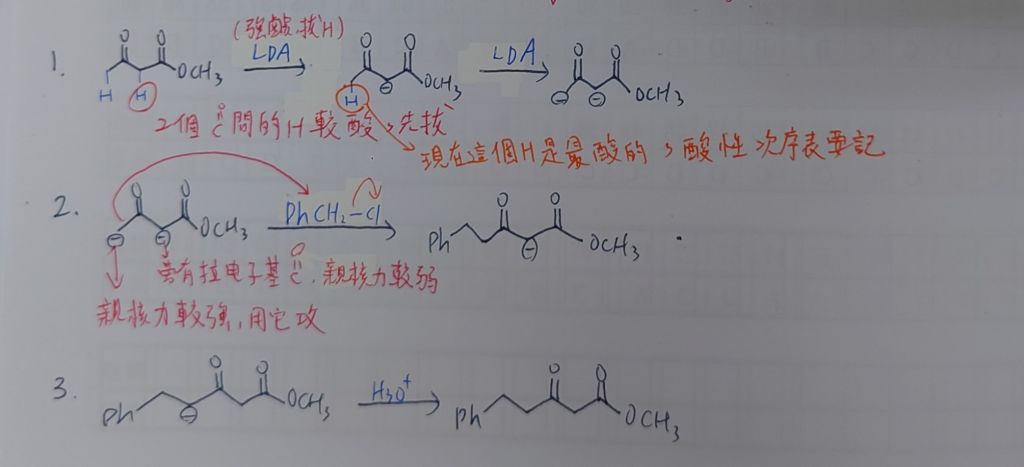 (強鹼,拔H)
1. O O OCH3 H H LDA O O OCH3 H ⊖ LDA O O OCH3 ⊖ ⊖
2個 C=O 間的 H 較酸,先拔
現在這個H是最酸的,酸性次序表要記
2. O O OCH3 ⊖ ⊖ PhCH2-Cl O O Ph ⊖ OCH3
旁有拉电子基 C=O,親核力較弱
親核力較強,用它攻
3. O O Ph ⊖ OCH3 H3O+ O O Ph OCH3